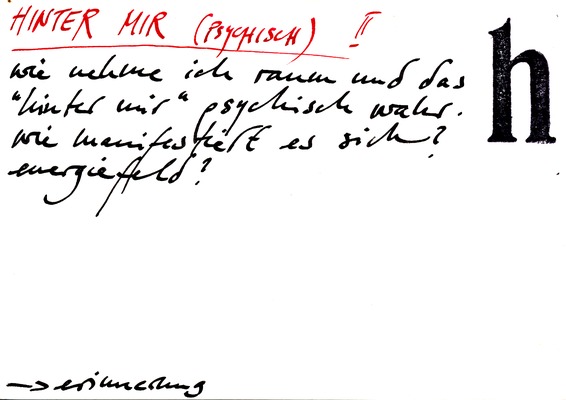 HINTER MIR (PSYCHISCH) II
h
wie nehme ich raum und das
"hinter mir" psychisch wahr.
wie manifestiert es sich?
energiefeld?
→ erinnerung